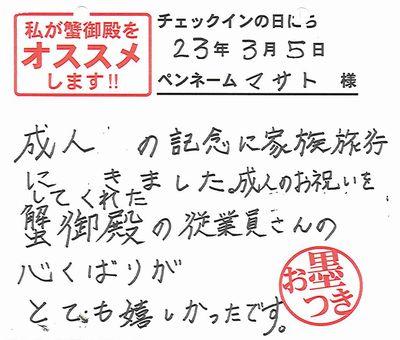 私が蟹御殿を
オススメ
します!!
チェックインの日にち
23年3月5日
ペンネーム マサト 様
成人 の記念に家族旅行
に きました。成人のお祝いを
してくれた
蟹御殿の従業員さんの
心くばりが
とても嬉しかったです。
お墨つき